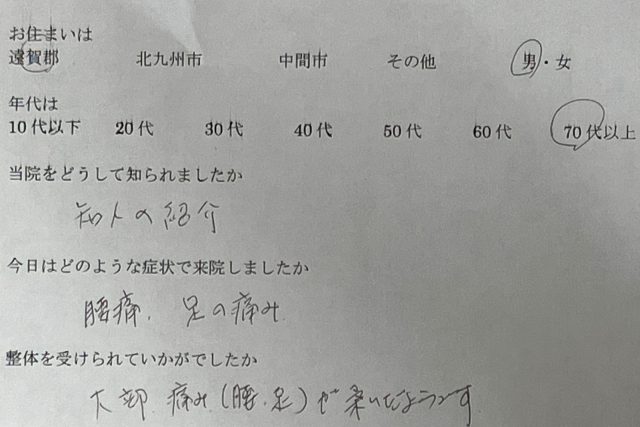 お住まいは
遠賀郡 北九州市 中間市 その他 男・女
年代は
10代以下 20代 30代 40代 50代 60代 70代以上
当院をどうして知られましたか
知人の紹介
今日はどのような症状で来院しましたか
腰痛. 足の痛み
整体を受けられていかがでしたか
大部 痛み(腰.足)が 楽いだようです